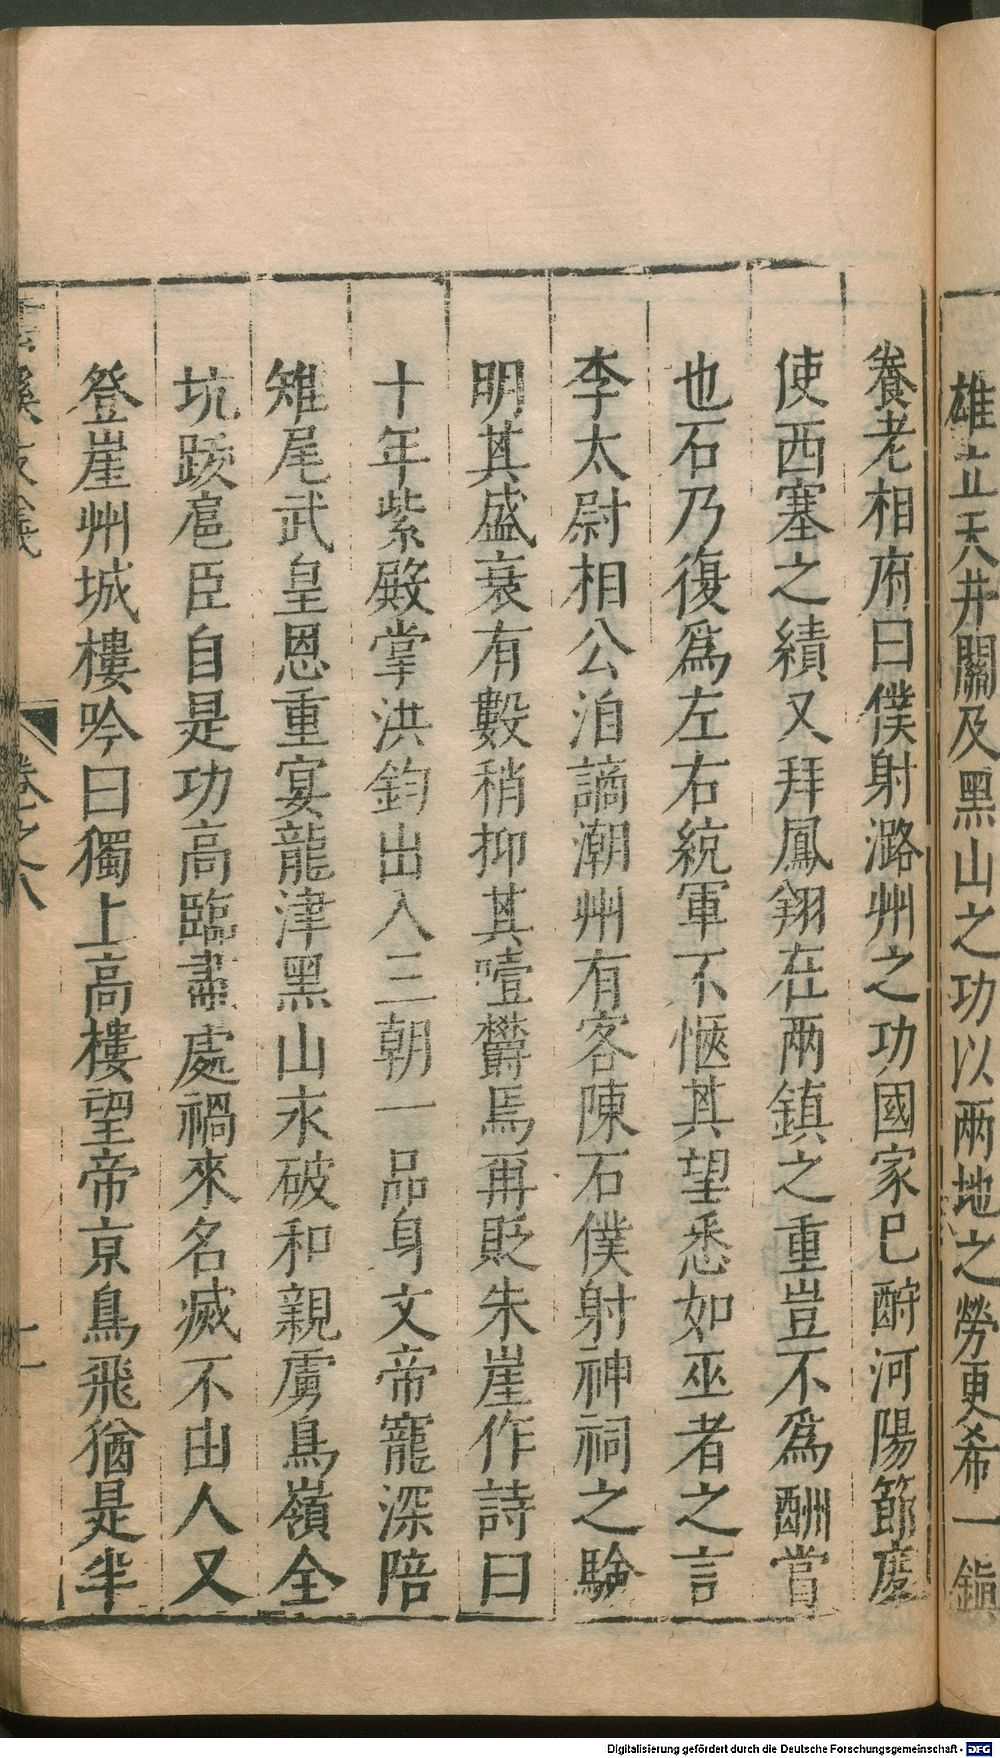 雄立天井關及黑山之功以兩地之勞更希一鎮
養老相府曰僕射潞州之功國家已酧河陽節度
使西塞之績又拜鳳翔在兩鎮之重豈不爲酬賞
也石乃復爲左右統軍不愜其望悉如巫者之言
李太尉相公洎謫潮州有客陳石僕射神祠之驗
明其盛衰有數稍抑其噎欝焉再貶朱崖作詩曰
十年紫殿掌洪鈞出入三朝一品身文帝寵深陪
雉尾武皇恩重宴龍津黑山永破和親虜鳥嶺全
坑䟦扈臣自是功高臨盡處禍來名滅不由人又
登崖州城樓吟曰獨上高樓望帝京鳥飛猶是半
雲溪友議
卷之八
十一
Digitalisierung gefördert durch die Deutsche Forschungsgemeinschaft - DFG